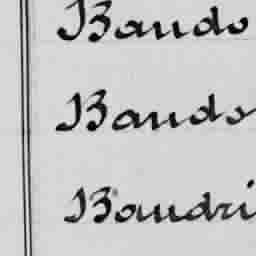 Baudo
Baudo
Baudri